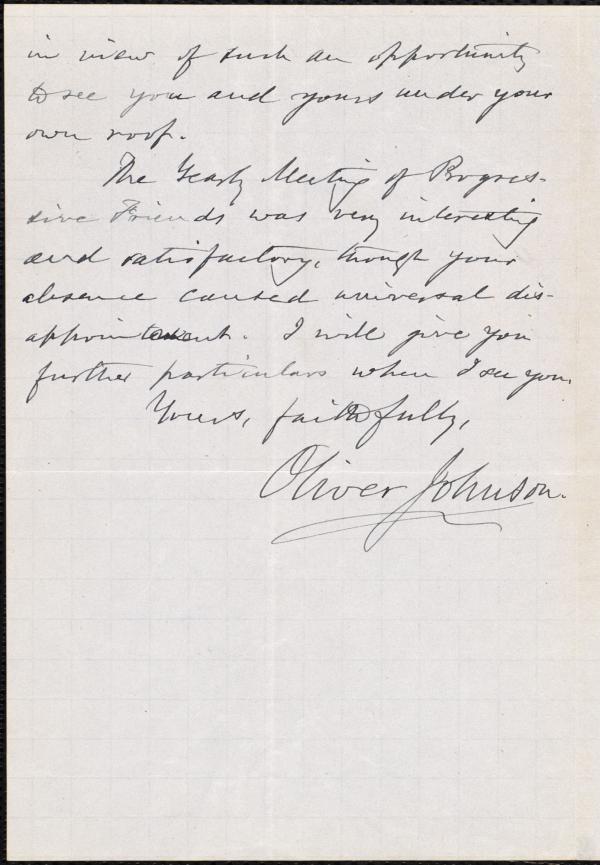 in view of such an opportunity
to see you and yours under your
own roof.
The Yearly Meeting of Progres-
sive Friends was very interesting
and satisfactory, though your
absence caused universal dis-
appointment. I will give you
further particulars when I see you.
Yours, faithfully,
Oliver Johnson.